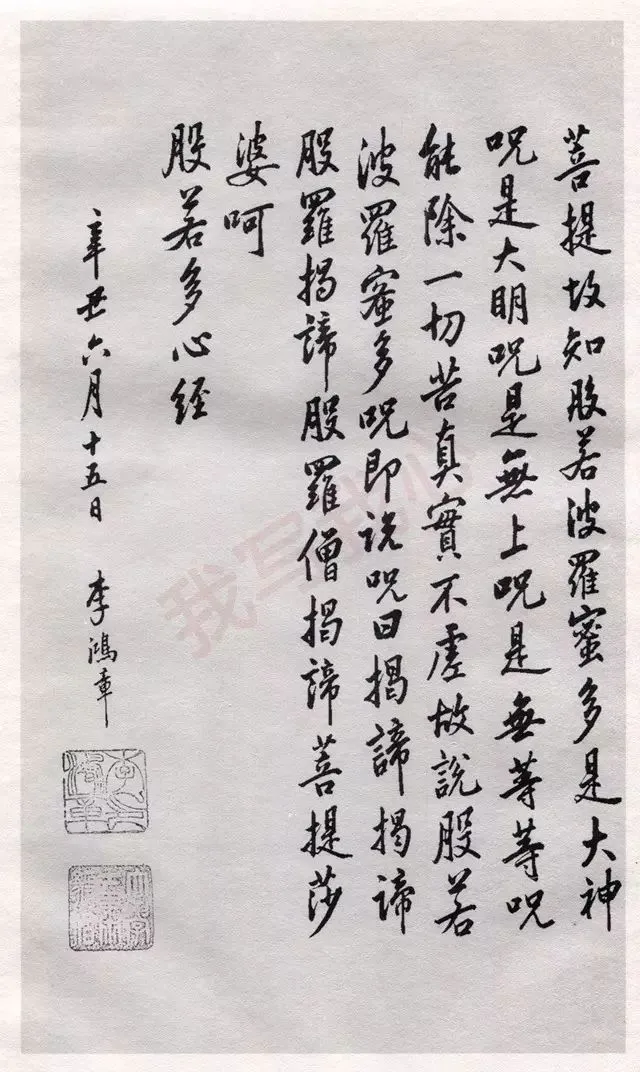 菩提故知股若波羅蜜多是大神
呪是大明呪是無上呪是無等等呪
能除一切苦真實不虛故說股若
波羅蜜多呪即説呪曰揭諦揭諦
股羅揭諦股羅僧揭諦菩提莎
婆呵
股若多心経
辛丑六月十五日 李鴻章
我写我心